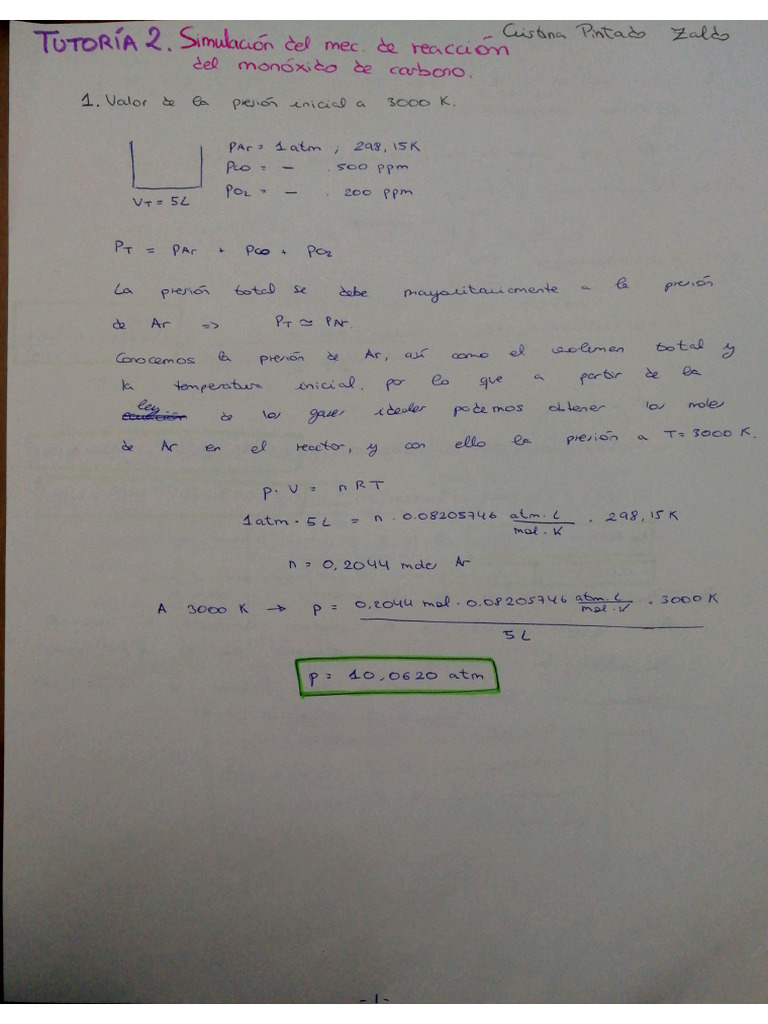 TUTORÍA 2. Simulación del mec. de reacción
del monóxido de carbono.
Cristina Pintado Zaldo
1. Valor de la presión inicial a 3000 K.
PAr = 1 atm ; 298,15K
PCO = — . 500 ppm
PO2 = — . 200 ppm
VT = 5L
PT = PAr + PCO + PO2
La presión total se debe mayoritariamente a la presión
de Ar => PT ≃ PAr.
Conocemos la presión de Ar, así como el volumen total y
la temperatura inicial, por lo que a partir de la
ley
ecuación de los gases ideales podemos obtener los moles
de Ar en el reactor, y con ello la presión a T = 3000 K.
p · V = nRT
1 atm · 5 L = n · 0.08205746 atm · L / mol · K · 298,15K
n = 0,2044 moles Ar
A 3000 K → p = 0,2044 mol · 0.08205746 atm · L / mol · K · 3000 K
5 L
p = 10,0620 atm
- 1 -